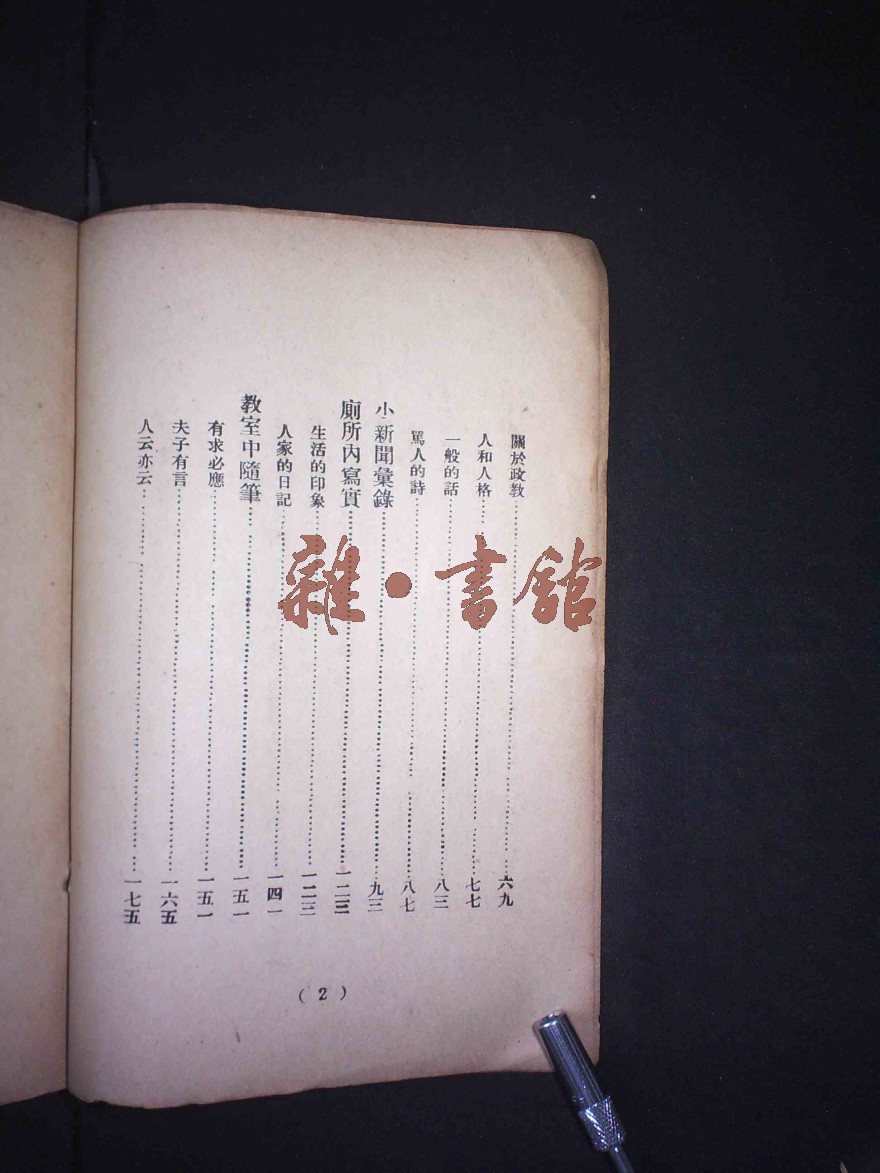 關於政教……六九
人和人格……七七
一般的話……八三
罵人的詩……八七
小新聞彙錄……九三
廁所內寫實……一二三
生活的印象……一二三
人家的日記……一四一
教室中隨筆……一五一
有求必應……一五一
夫子有言……一六五
人云亦云……一七五
(2)
雜·書館